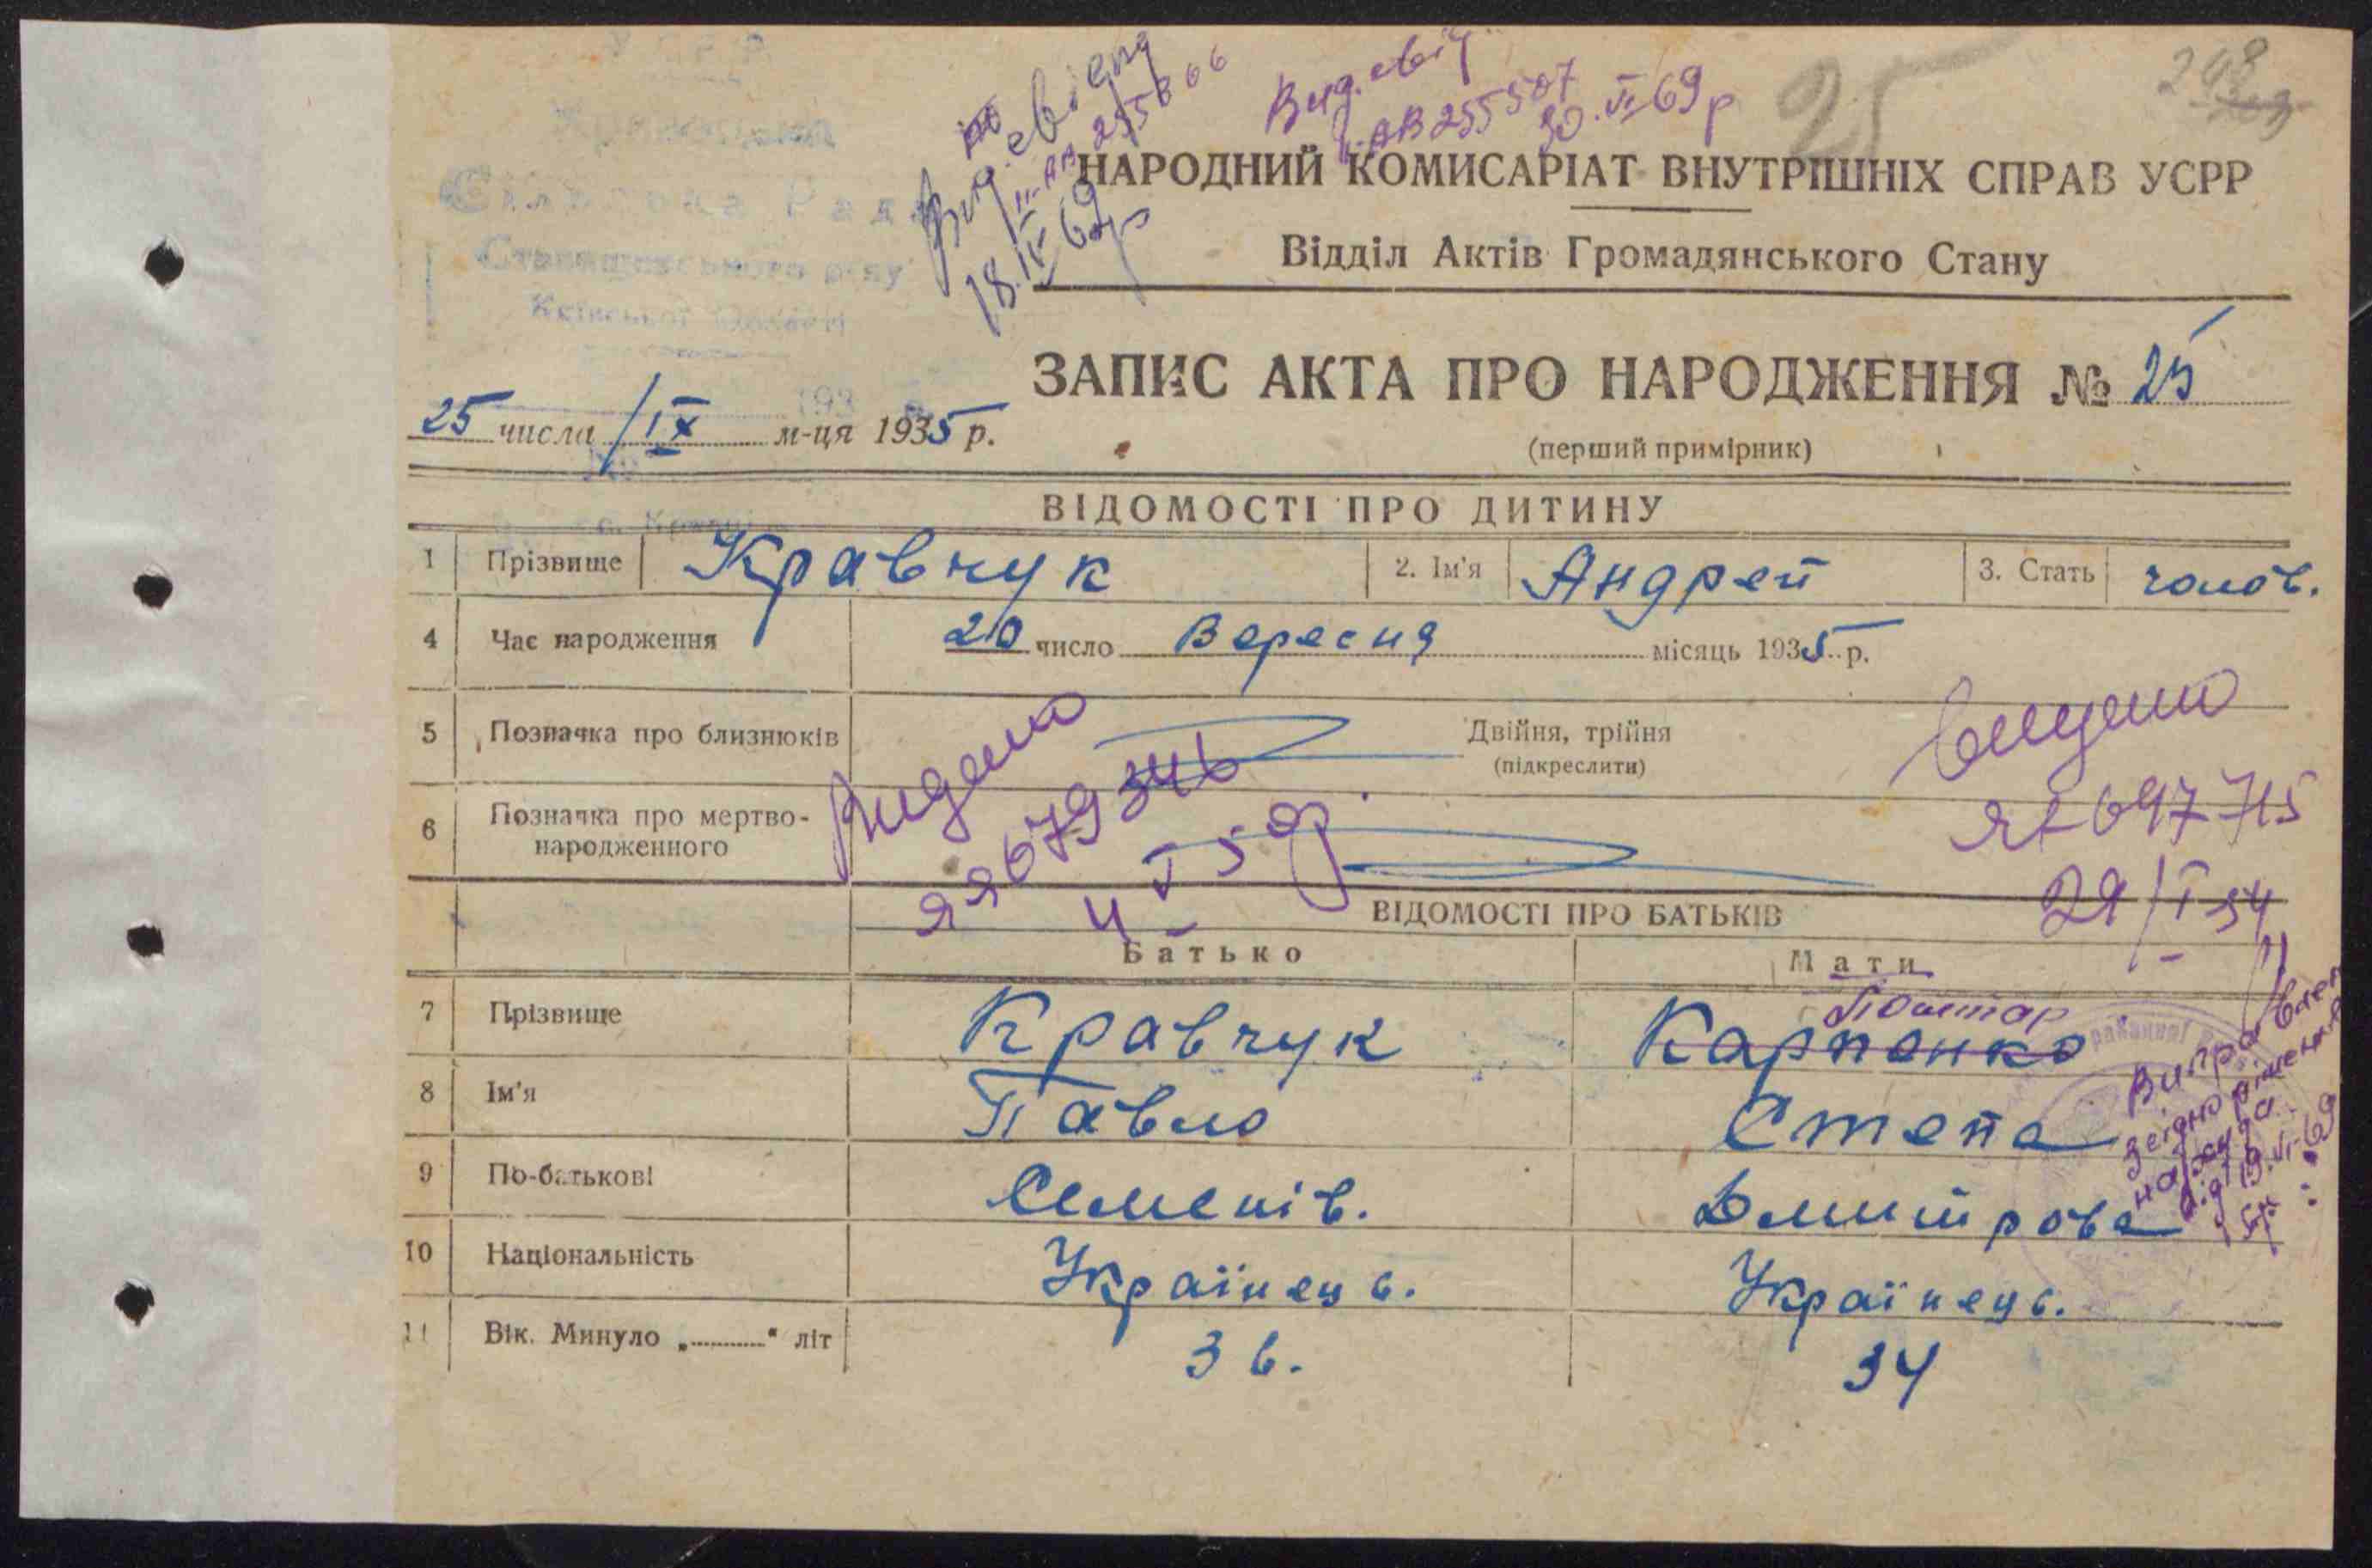 248
25
Вид. свід
II-АВ 255507
30.VI 69р
18.IV 69р
НАРОДНИЙ КОМИСАРІАТ ВНУТРІШНІХ СПРАВ УСРР
Відділ Актів Громадянського Стану
Сільська Рада
Ставищенського р-ну
Київської Області
ЗАПИС АКТА ПРО НАРОДЖЕННЯ № 25
25 числа IX м-ця 1935 р.
(перший примірник)
ВІДОМОСТІ ПРО ДИТИНУ
1 Прізвище Кравчук 2. Ім'я Андрей 3. Стать чолов.
4 Час народження 20 число Вересня місяць 1935 р.
5 Позначка про близнюків Двійня, трійня
(підкреслити)
6 Позначка про мертво-
народженного
Видано
ЯЯ 679346
4 V 59р.
697715
29/I 54
ВІДОМОСТІ ПРО БАТЬКІВ
Батько Мати
7 Прізвище Кравчук Карпенко
8 Ім'я Павло Степа
9 По-батькові Семенів. Дмитрова
10 Національність Українець. Українець.
11 Вік. Минуло „ “ літ 36. 34
Виправлен
згідно рішення
нарсуда
від 19.VI-69